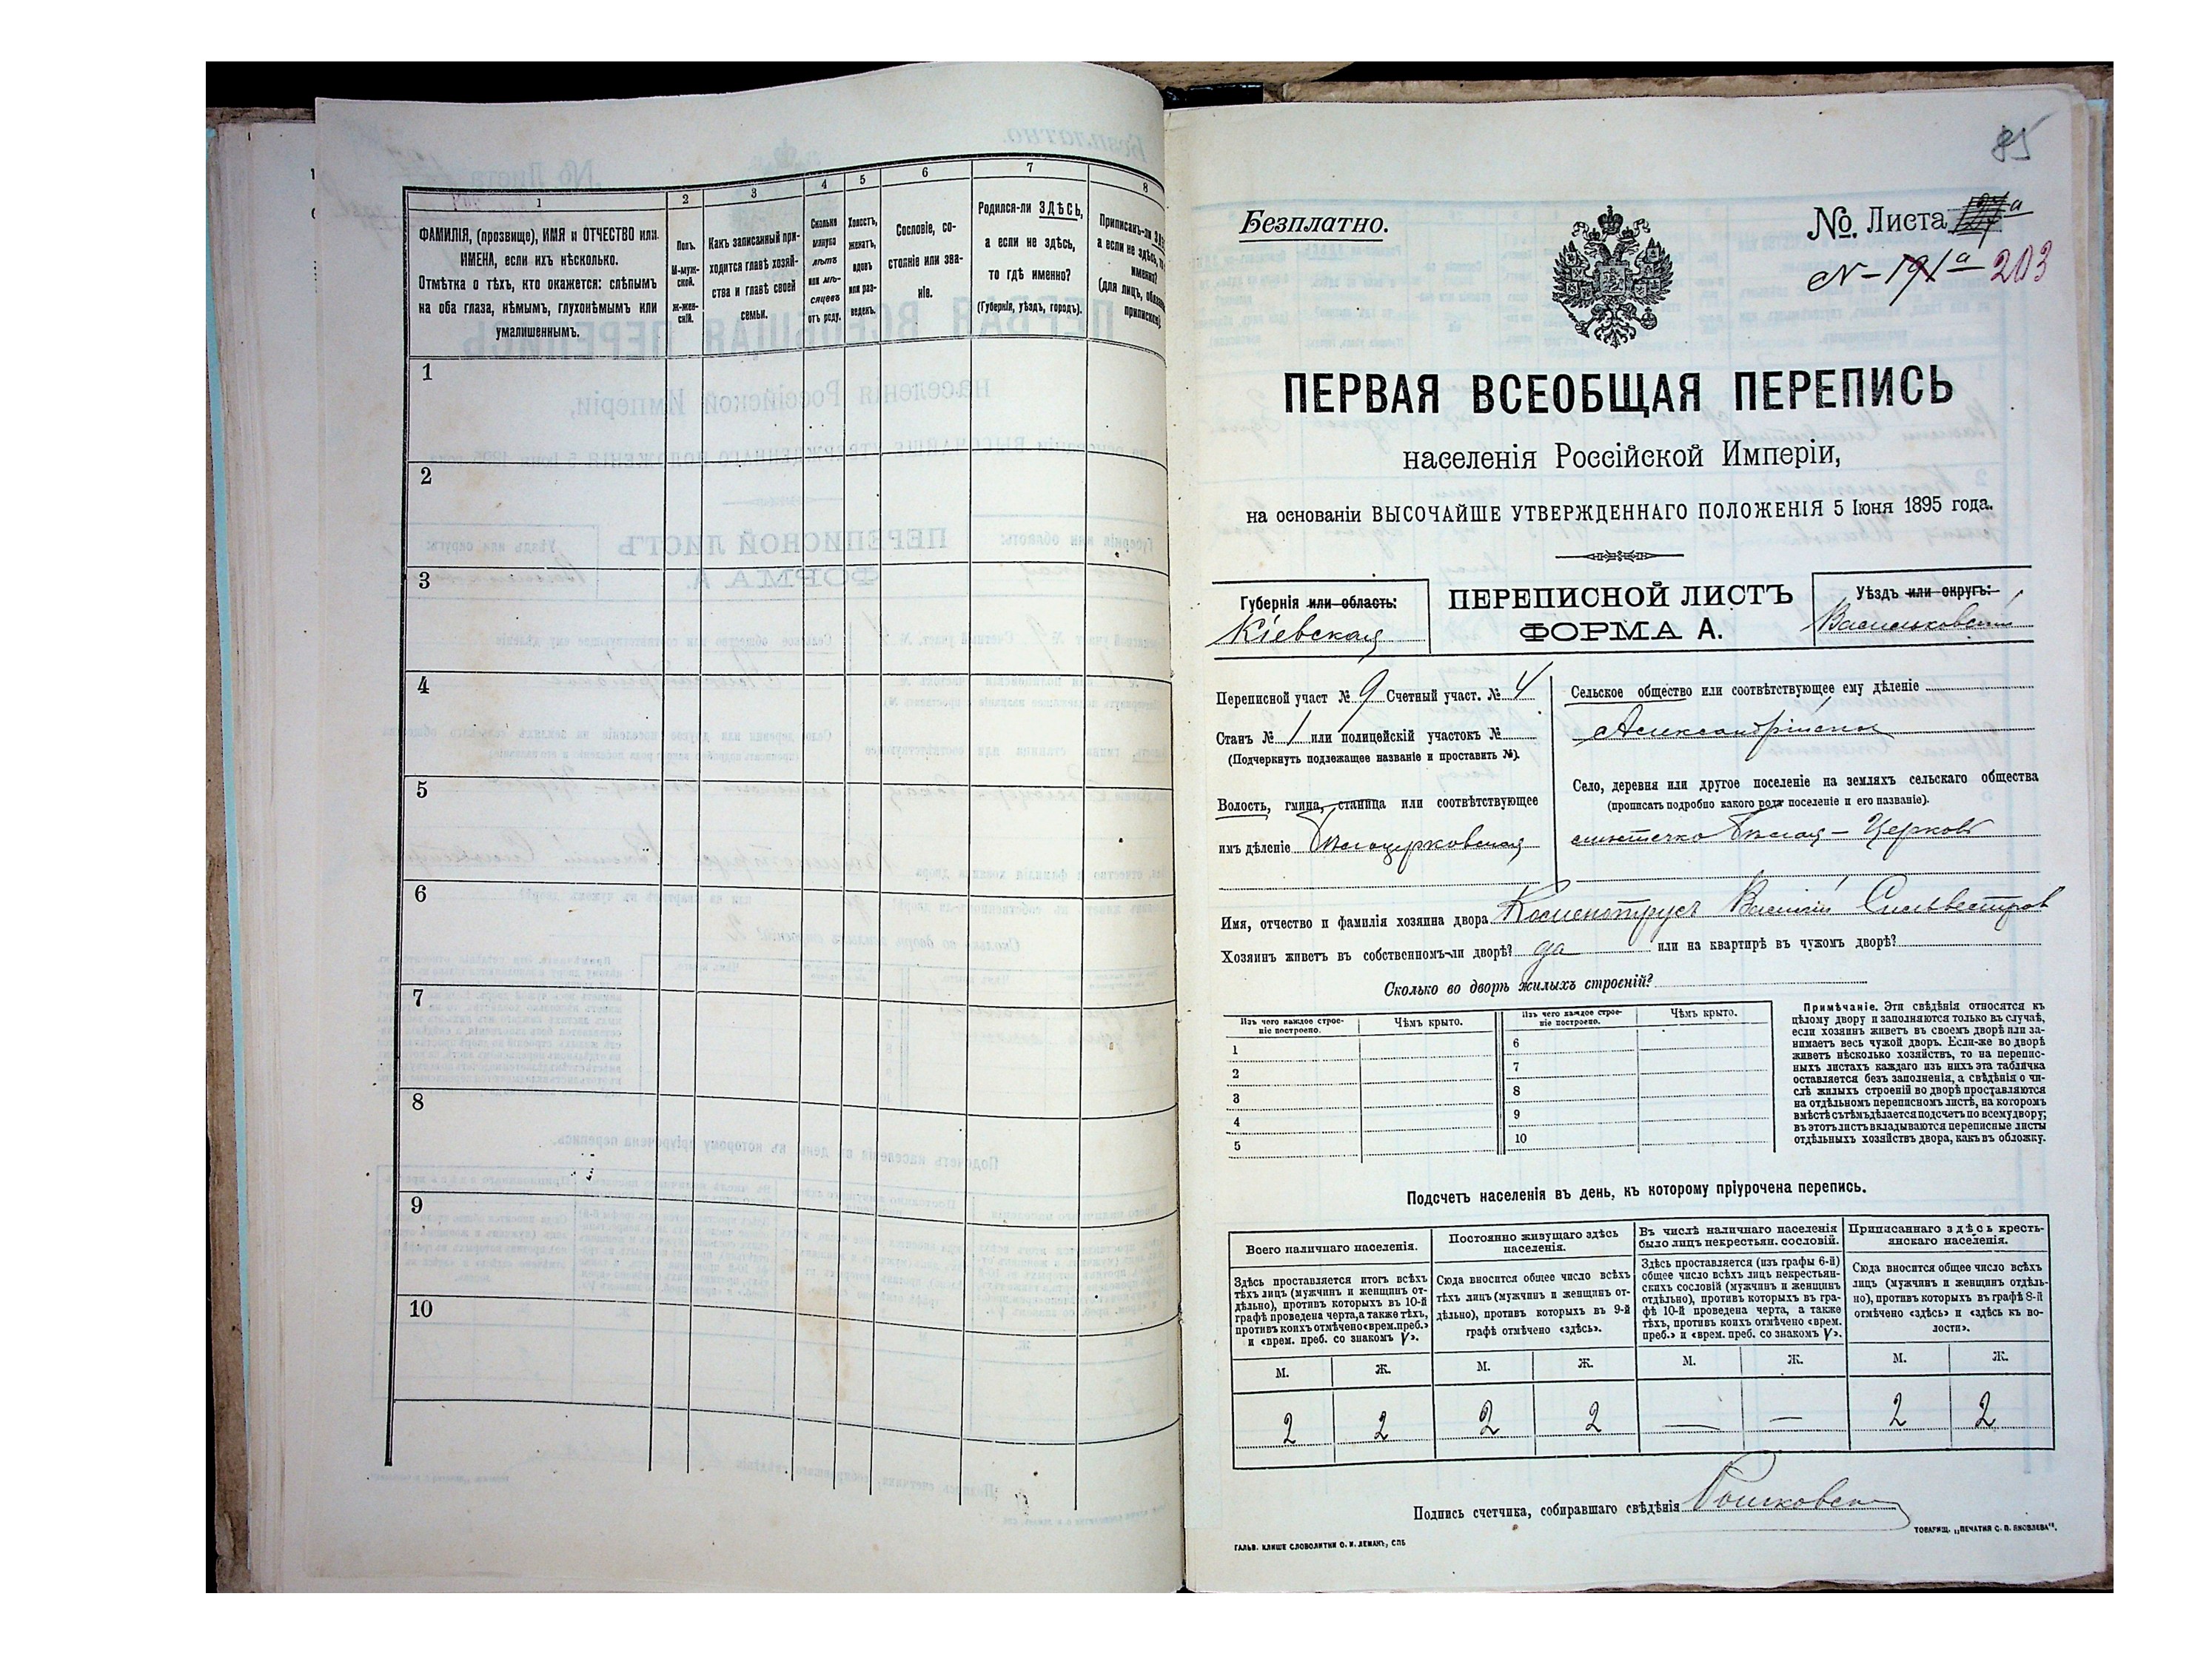 1
2
3
4
5
6
7
8
ФАМИЛІЯ, (прозвище), ИМЯ и ОТЧЕСТВО или
ИМЕНА, если ихъ нѣсколько.
Отмѣтка о тѣхъ, кто окажется: слѣпымъ
на оба глаза, нѣмымъ, глухонѣмымъ или
умалишеннымъ.
Полъ.
М-муж-
ской.
Ж-жен-
скій.
Какъ записанный при-
ходится главѣ хозяй-
ства и главѣ своей
семьи.
Сколько
минуло
лѣтъ
или мѣ-
сяцевъ
отъ роду.
Холостъ,
женатъ,
вдовъ
или раз-
веденъ.
Сословіе, со-
стояніе или зва-
ніе.
Родился-ли ЗДѢСЬ,
а если не здѣсь,
то гдѣ именно?
(Губернія, уѣздъ, городъ).
Приписанъ-ли
а если не здѣсь,
именно?
(для лицъ,
1
2
3
4
5
6
7
8
9
10
85
Безплатно.
№ Листа
N - 191а 203
ПЕРВАЯ ВСЕОБЩАЯ ПЕРЕПИСЬ
населенія Россійской Имперіи,
на основаніи ВЫСОЧАЙШЕ УТВЕРЖДЕННАГО ПОЛОЖЕНІЯ 5 Іюня 1895 года.
Губернія или область:
Кіевская
ПЕРЕПИСНОЙ ЛИСТЪ
ФОРМА А.
Уѣздъ или округъ:
Васильковскій
Переписной участ № 9 Счетный участ. № 4
Станъ № 1 или полицейскій участокъ №
(Подчеркнуть подлежащее названіе и проставить №).
Волость, гмина, станица или соотвѣтствующее
имъ дѣленіе Бѣлоцерковская
Сельское общество или соотвѣтствующее ему дѣленіе
Александрійское
Село, деревня или другое поселеніе на земляхъ сельскаго общества
(прописать подробно какого рода поселеніе и его названіе).
мѣстечко Бѣлая-Церковь
Имя, отчество и фамилія хозяина двора Василій Сильвестров
Хозяинъ живетъ въ собственномъ-ли дворѣ? да или на квартирѣ въ чужомъ дворѣ?
Сколько во дворѣ жилыхъ строеній?
Изъ чего каждое строе-
ніе построено.
Чѣмъ крыто.
Изъ чего каждое строе-
ніе построено.
Чѣмъ крыто.
1
2
3
4
5
6
7
8
9
10
Примѣчаніе. Эти свѣдѣнія относятся къ
цѣлому двору и заполняются только въ случаѣ,
если хозяинъ живетъ въ своемъ дворѣ или за-
нимаетъ весь чужой дворъ. Если-же во дворѣ
живетъ нѣсколько хозяйствъ, то на перепис-
ныхъ листахъ каждаго изъ нихъ эта табличка
оставляется безъ заполненія, а свѣдѣнія о чи-
слѣ жилыхъ строеній во дворѣ проставляются
на отдѣльномъ переписномъ листѣ, на которомъ
вмѣстѣ съ тѣмъ дѣлается подсчетъ по всему двору;
въ этотъ листъ вкладываются переписные листы
отдѣльныхъ хозяйствъ двора, какъ въ обложку.
Подсчетъ населенія въ день, къ которому пріурочена перепись.
Всего наличнаго населенія.
Здѣсь проставляется итогъ всѣхъ
тѣхъ лицъ (мужчинъ и женщинъ от-
дѣльно), противъ которыхъ въ 10-й
графѣ проведена черта, а также тѣхъ,
противъ коихъ отмѣчено «врем. преб.»
и «врем. преб. со знакомъ V».
Постоянно живущаго здѣсь
населенія.
Сюда вносится общее число всѣхъ
тѣхъ лицъ (мужчинъ и женщинъ от-
дѣльно), противъ которыхъ въ 9-й
графѣ отмѣчено «здѣсь».
Въ числѣ наличнаго населенія
было лицъ некрестьян. сословій.
Здѣсь проставляется (изъ графы 6-й)
общее число всѣхъ лицъ некрестьян-
скихъ сословій (мужчинъ и женщинъ
отдѣльно), противъ которыхъ въ гра-
фѣ 10-й проведена черта, а также
тѣхъ, противъ коихъ отмѣчено «врем.
преб.» и «врем. преб. со знакомъ V».
Приписаннаго здѣсь кресть-
янскаго населенія.
Сюда вносится общее число всѣхъ
лицъ (мужчинъ и женщинъ отдѣль-
но), противъ которыхъ въ графѣ 8-й
отмѣчено «здѣсь» и «здѣсь къ во-
лости».
М. Ж. М. Ж. М. Ж. М. Ж.
2 2 2 2 — — 2 2
Подпись счетчика, собиравшаго свѣдѣнія
ГАЛЬВ. КЛИШЕ СЛОВОЛИТНИ О. И. ЛЕМАНЪ, СПБ
ТОВАРИЩ. „ПЕЧАТНЯ С. П. ЯКОВЛЕВА“.